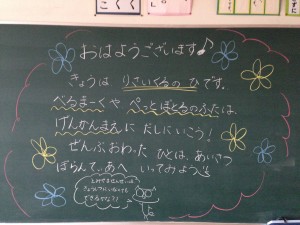 こくご
おはようございます♪
きょうは りさいくるの ひです。
べるまーくや ぺっとぼとるのふたは、
げんかんまえに だしにいこう！
ぜんぶ おわった ひとは、あいさつ
ぼらんてぃあへ いってみよう!!